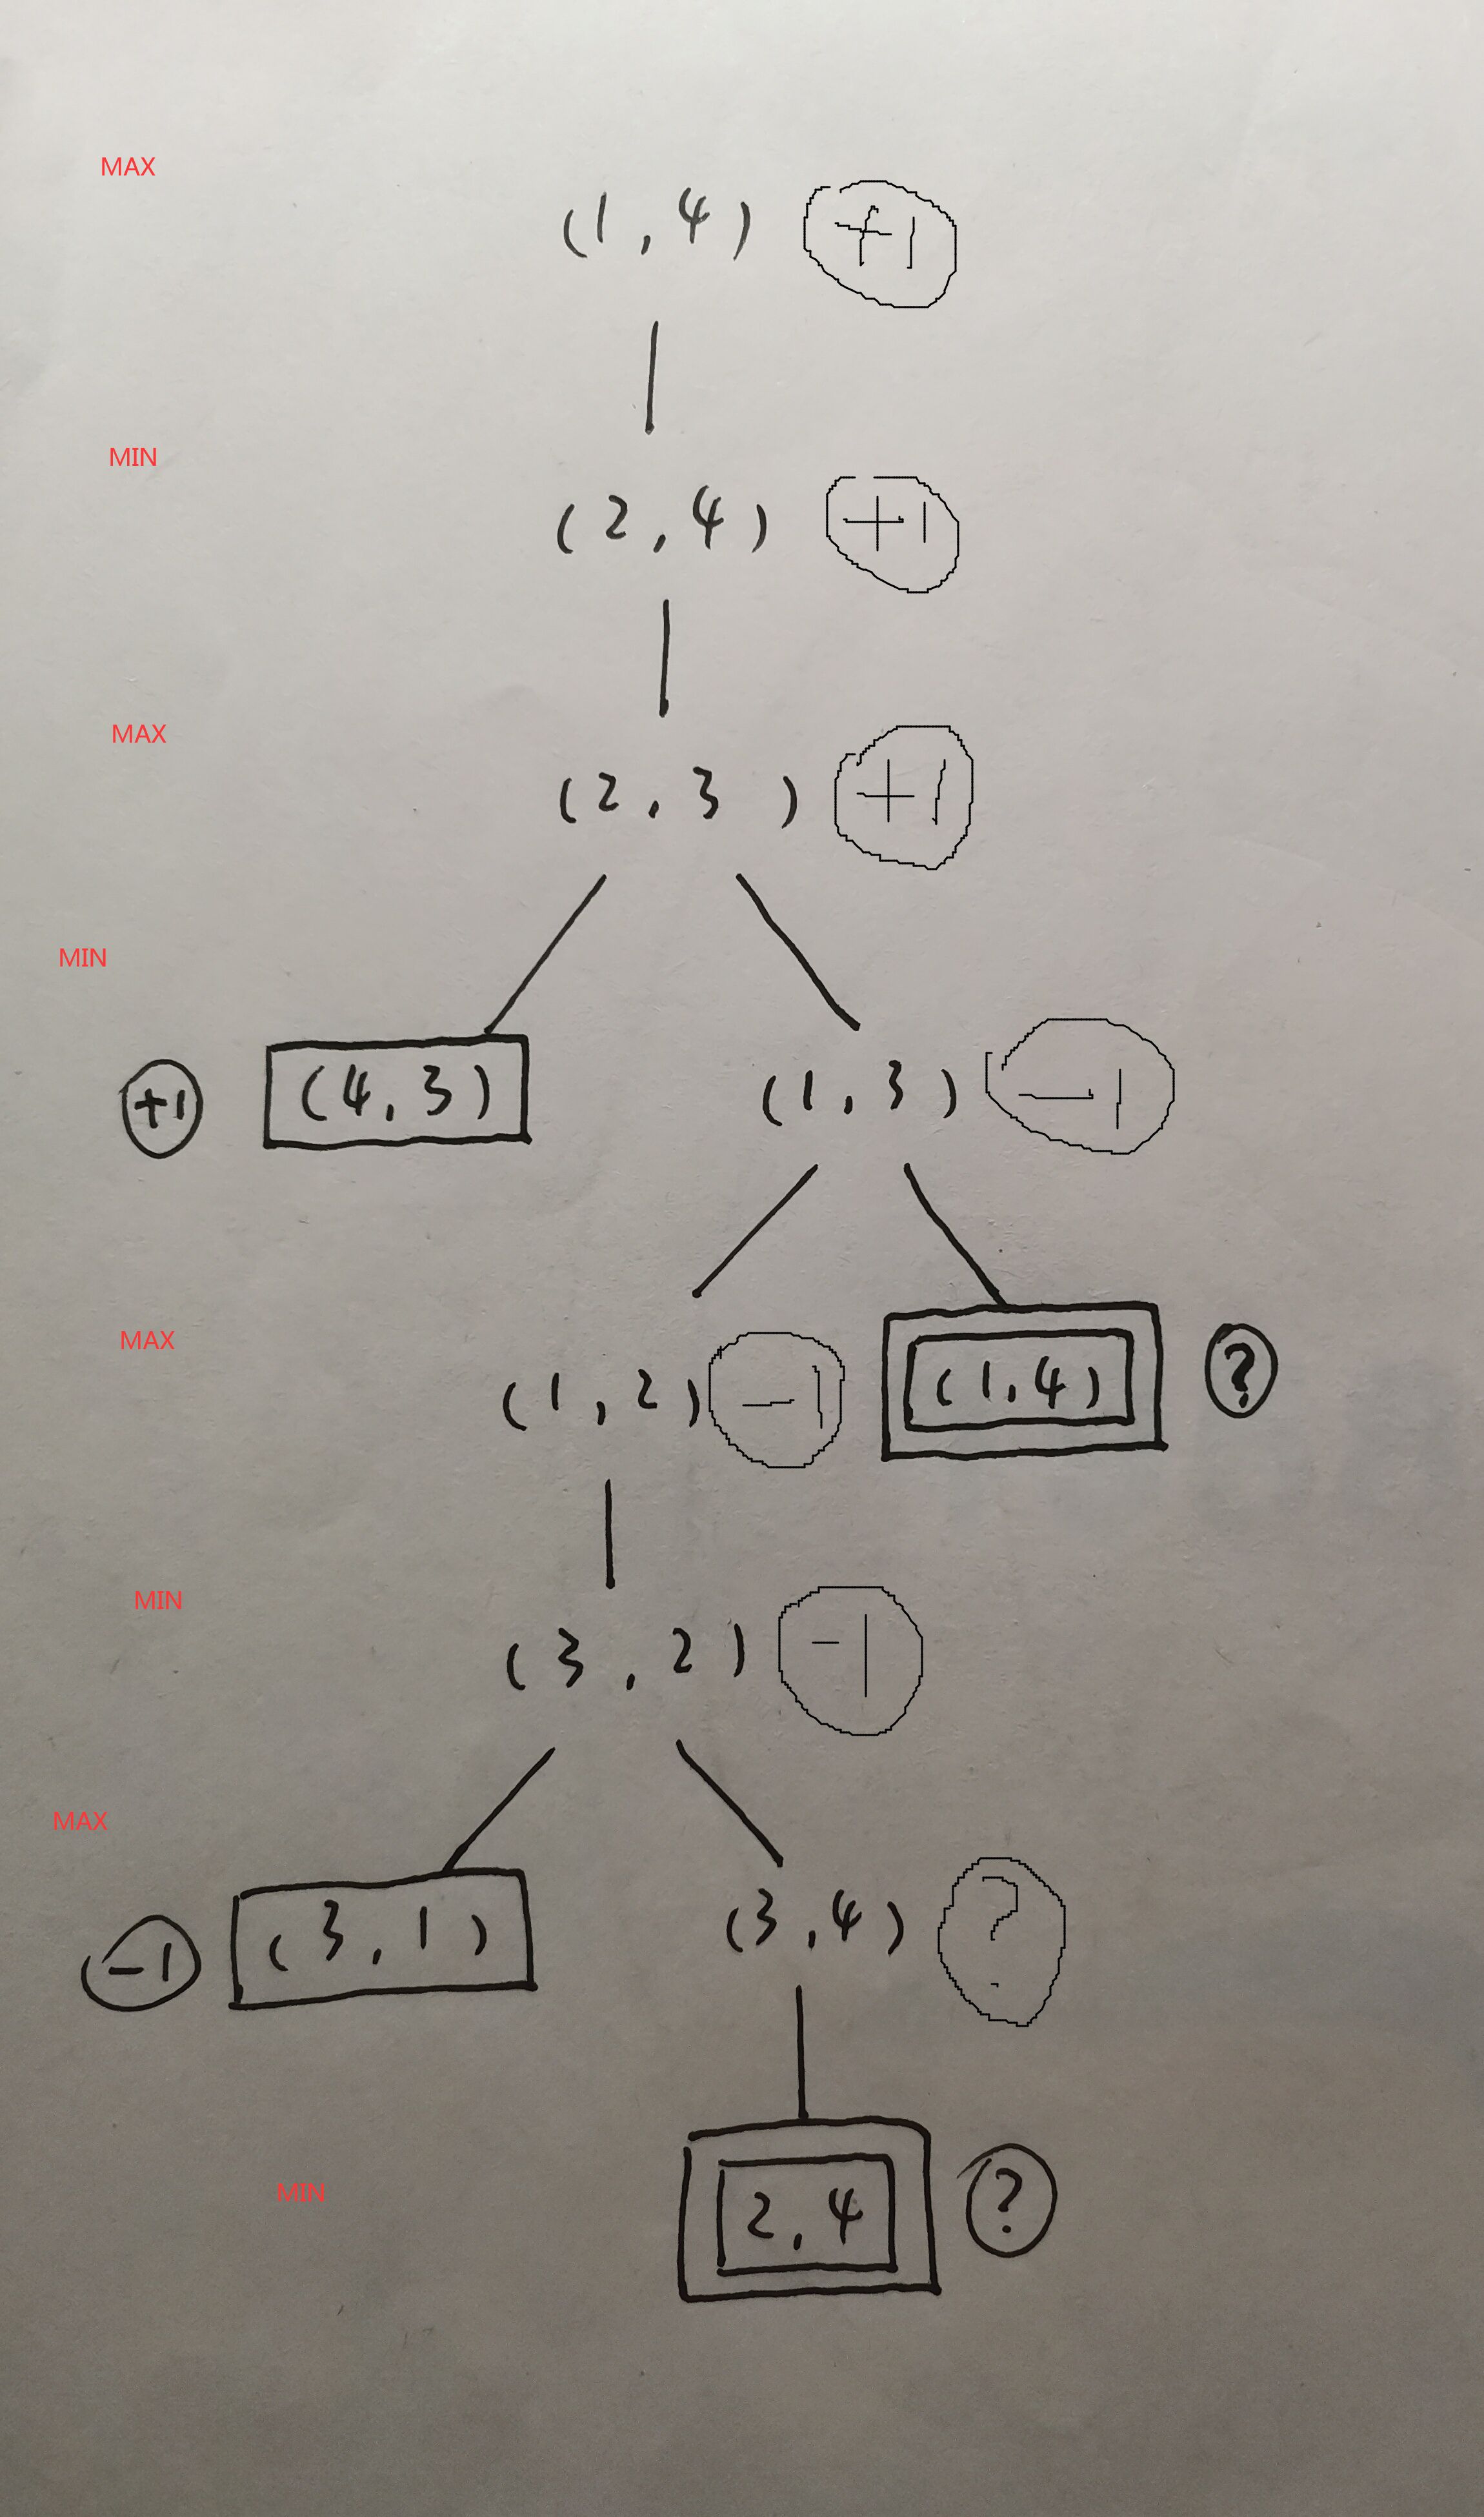 MAX
(1,4) +1
MIN
(2,4) +1
MAX
(2,3) +1
MIN
+1 (4,3) (1,3) -1
MAX
(1,2) -1 (1,4) ?
MIN
(3,2) -1
MAX
-1 (3,1) (3,4) ?
MIN
2,4 ?